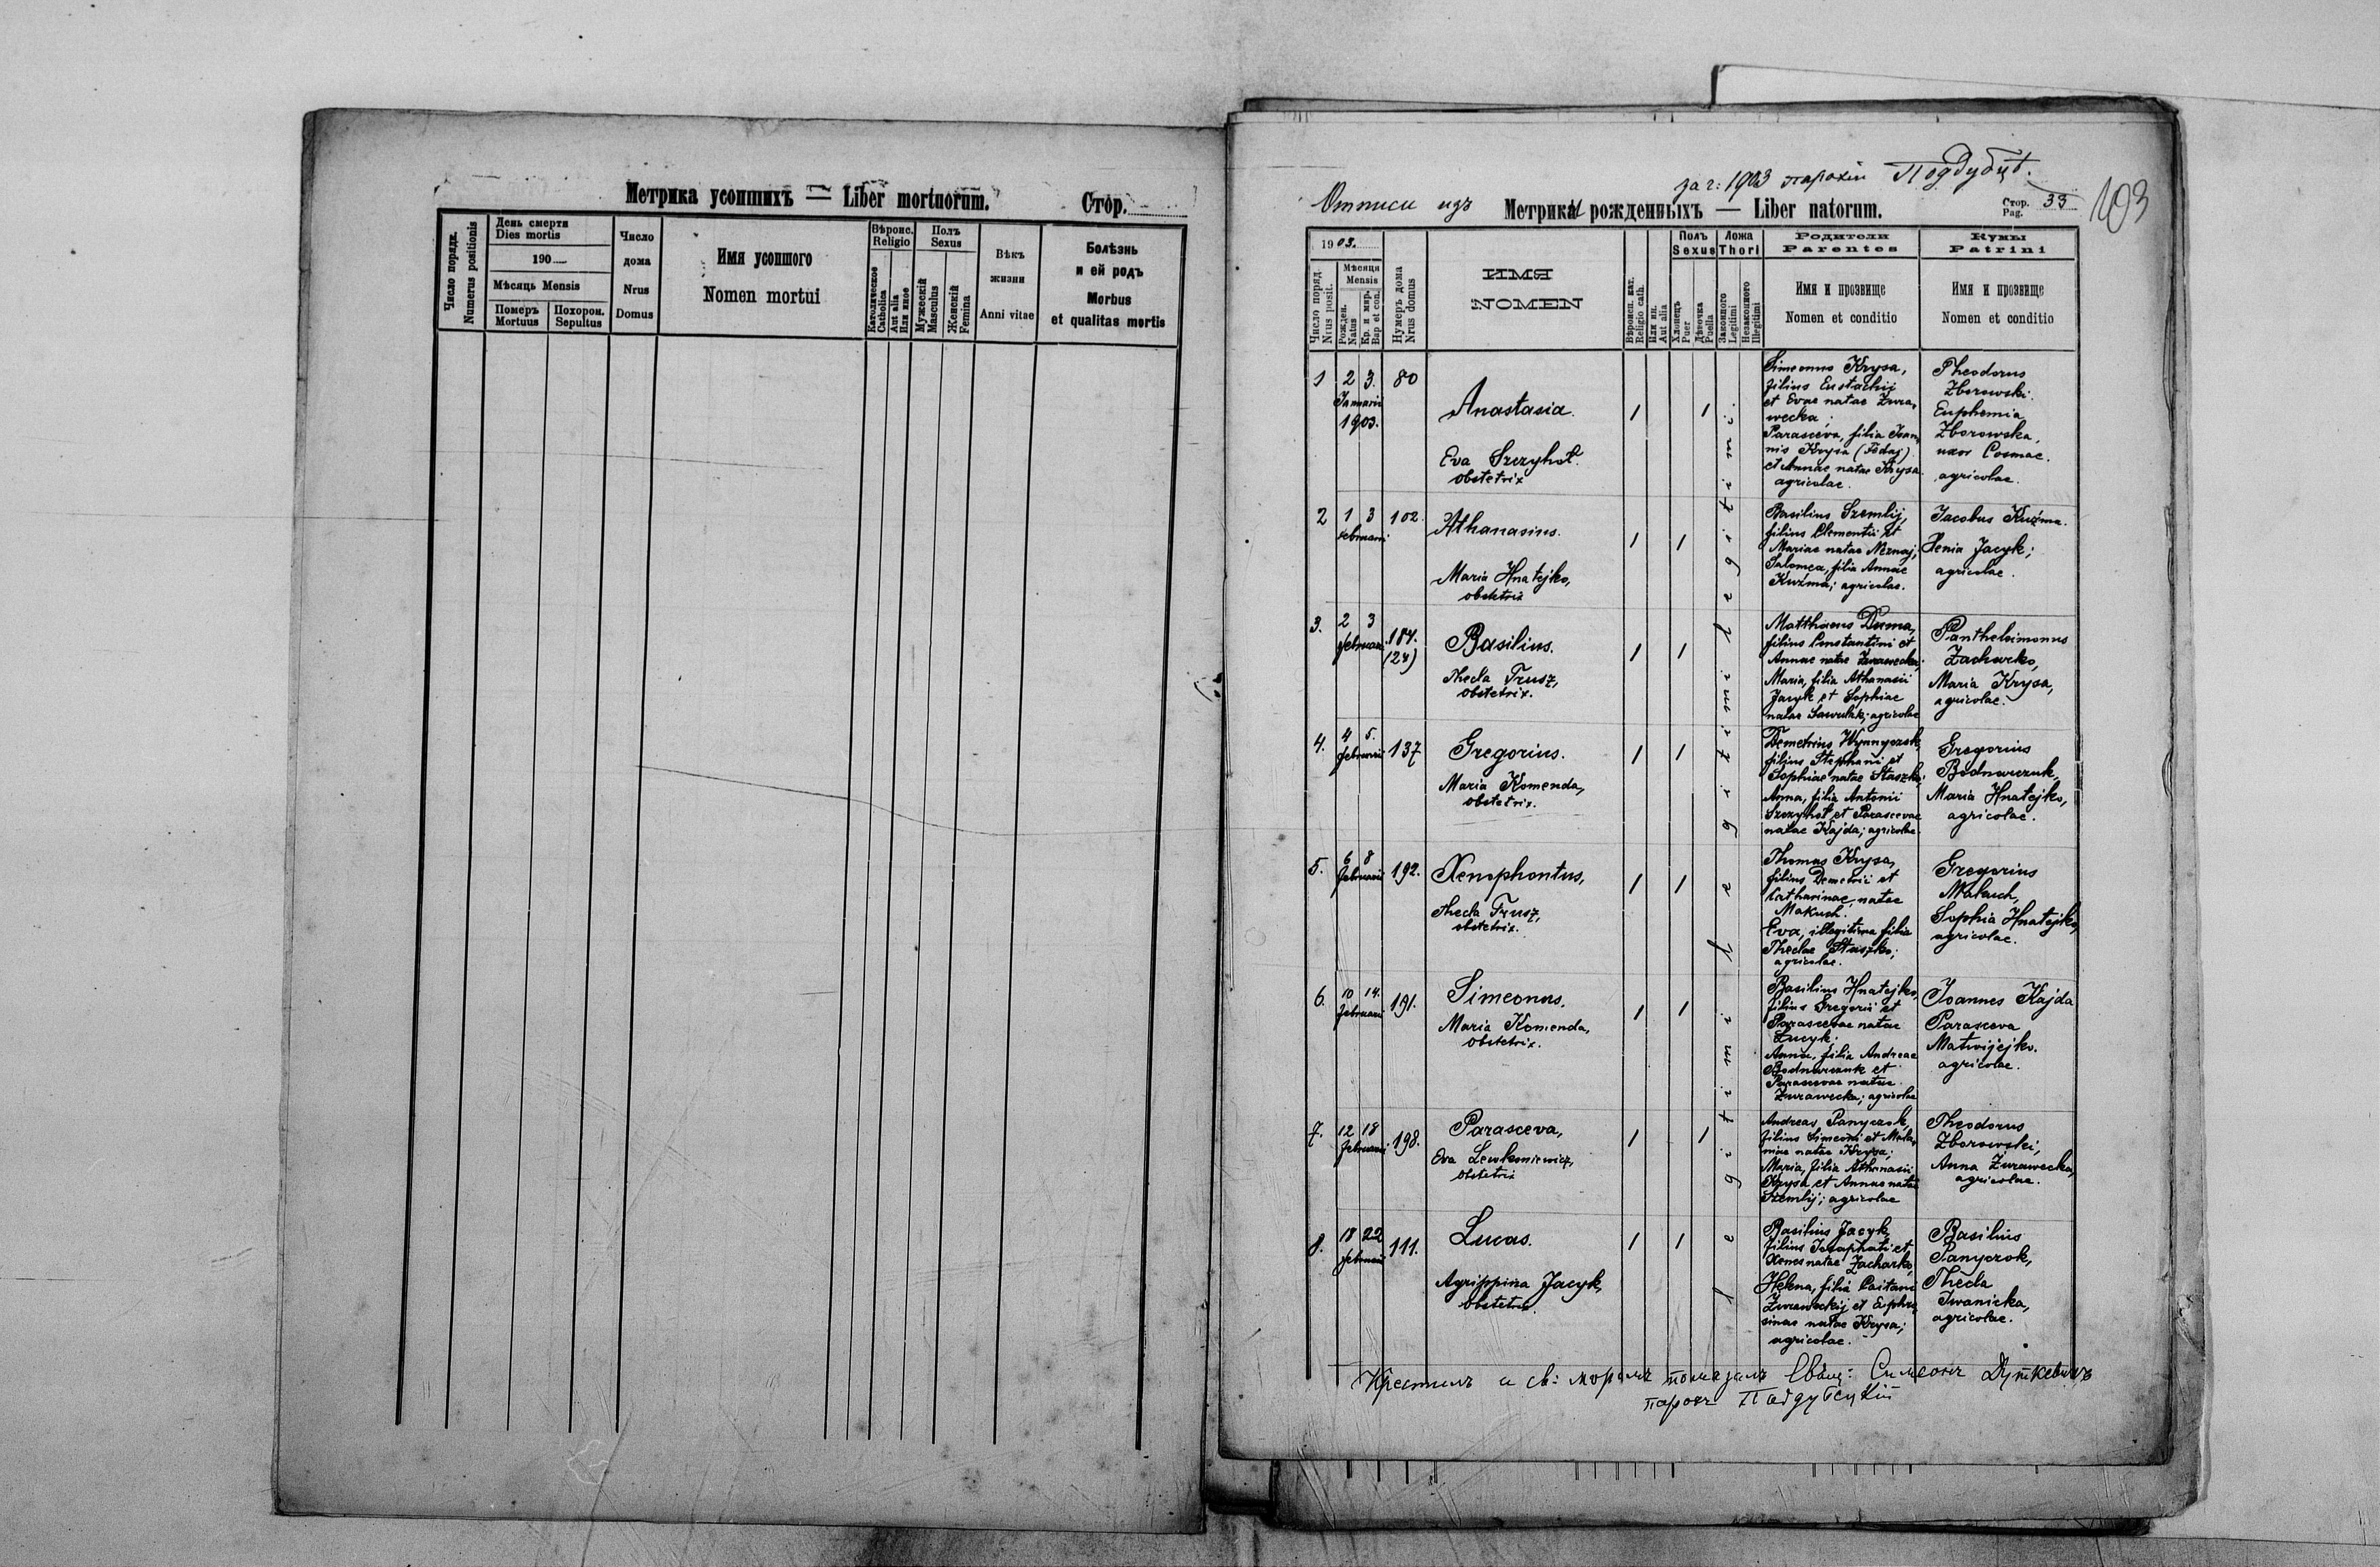 Метрика усопшихъ — Liber mortuorum. Стор.
Число порядк. Numerus positionis
День смерти
Dies mortis
190
Мѣсяць Mensis
Померъ
Mortuus
Похорон.
Sepultus
Число
дома
Nrus
Domus
Имя усопшого
Nomen mortui
Вѣроис.
Religio
Католическое
Catholica
Aut alia
Или иное
Полъ
Sexus
Мужескій
Masculus
Женскій
Femina
Вѣкъ
жизни
Anni vitae
Болѣзнь
и ей родъ
Morbus
et qualitas mortis
за г: 1903 парохіи Поддубцѣ.
Отписи изъ Метрикъ рожденныхъ — Liber natorum.
Стор.
Pag. 33
103
1903.
Число поряд.
Nrus posit.
Мѣсяця
Mensis
Рожден.
Natus
Кр. и мир.
Bap et con.
Нумеръ дома
Nrus domus
ИМЯ
NOMEN
Вѣроисп. кат.
Religio cath.
Или ин.
Aut alia
Полъ
Sexus
Хлопецъ
Puer
Дѣвочка
Puella
Ложа
Thori
Законного
Legitimi
Незаконного
Illegitimi
Родители
Parentes
Имя и прозвище
Nomen et conditio
Кумы
Patrini
Имя и прозвище
Nomen et conditio
1 2 3. 80
Januarii
1903.
Anastasia.
Eva Szczyhoł.
obstetrix
1 1
legitimi
Simeonus Krysa,
filius Eustachij
et Evae natae Żura-
wecka;
Parasceva, filia Joan-
nis Krysa (Fedaj)
et Annae natae Krysa.
agricolae.
Theodorus
Zborowski.
Euphemia
Zborowska,
uxor Cosmae.
agricolae.
2 1 3 102.
Februarii
Athanasius.
Maria Hnatejko,
obstetrix
1 1
Basilius Szemlij,
filius Clementii et
Mariae natae Neznaj;
Salomea, filia Annae
Kuźma; agricolae.
Jacobus Kuźma.
Xenia Jacyk;
agricolae.
3. 2 3 184.
Februarii (24)
Basilius.
Thecla Trusz,
obstetrix.
1 1
legitimi
Matthaeus Duma,
filius Constantini et
Annae natae Żurawecka;
Maria, filia Athanasii
Jacyk et Sophiae
natae Sawulak; agricolae
Pantheleimonus
Zacharko,
Maria Krysa,
agricolae.
4. 4 5. 137
Februarii
Gregorius.
Maria Komenda,
obstetrix.
1 1
Demetrius Wynnyczok,
filius Stephani et
Sophiae natae Staszko;
Anna, filia Antonii
Szczyhoł et Parascevae
natae Kajda; agricolae.
Gregorius
Bodnarczuk,
Maria Hnatejko,
agricolae.
5. 6 8 192.
Februarii
Xenophontus,
Thecla Trusz,
obstetrix.
1 1
Thomas Krysa,
filius Demetrii et
Catharinae, natae
Makuch.
Eva, illegitima filia
Theclae Staszko;
agricolae.
Gregorius
Makuch,
Sophia Hnatejko,
agricolae.
6. 10 14. 191.
Februarii
Simeonus.
Maria Komenda,
obstetrix.
1 1
legitimi
Basilius Hnatejko,
filius Gregorii et
Parascevae natae
Łucyk;
Anna, filia Andreae
Bodnarczuk et
Parascevae natae
Żurawecka; agricolae
Joannes Kajda
Parasceva
Matwijejko.
agricolae.
7. 12 18 198.
Februarii
Parasceva,
Eva Lewkoniewicz,
obstetrix
1 1
Andreas Panyczok,
filius Simeoni et Mela-
niae natae Krysa;
Maria, filia Athanasii
Krysa et Annae natae
Szemlij; agricolae
Theodorus
Zborowski;
Anna Żurawecka,
agricolae.
8. 18 22 111.
Februarii
Lucas.
Agrippina Jacyk,
obstetrix.
1 1
Basilius Jacyk,
filius Josaphati et
Xenes natae Zacharko,
Helena, filia Caitani
Żuraweckij et Euphro-
sinae natae Krysa;
agricolae.
Basilius
Panyczok,
Thecla
Iwanicka,
agricolae.
Крестилъ и св: мѵромъ помазалъ Свящ: Симеонъ Дуткевичъ
парохъ Поддубецкій